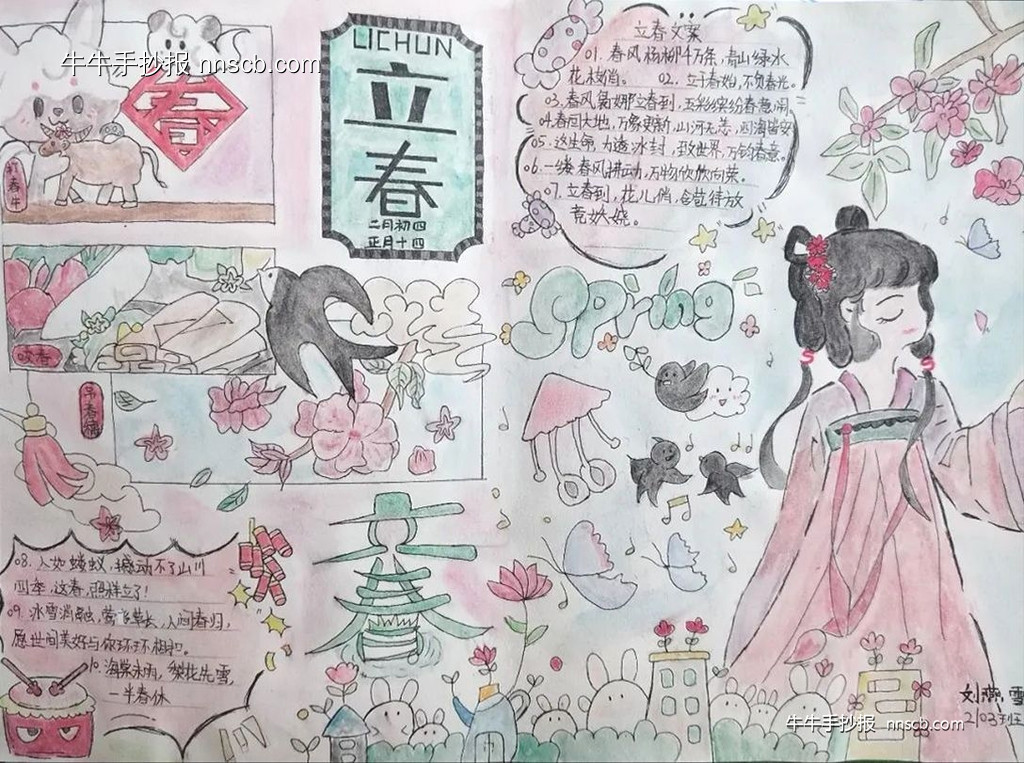 牛牛手抄报 nnscb.com
春
LICHUN
立
春
二月初四
正月十四
咬春
立春文案
01. 春风杨柳千万条，青山绿水
花枝俏。 02. 立于春始，不负春光。
03. 春风袅娜立春到，五彩缤纷春意闹
04. 春回大地，万象更新，山河无恙，四海皆安
05. 这生命，力透冰封，致世界，万钧春意。
06. 一缕春风拂动，万物欣欣向荣。
07. 立春到，花儿俏，含苞待放
竞妖娆。
Spring
08. 人如蝼蚁，撼动不了山川
四季，这春，照样立了！
09. 冰雪消融，莺飞草长，人间春归，
愿世间美好与你环环相扣。
10. 海棠未雨，梨花先雪，
一半春休
刘燕雪
2103班
牛牛手抄报 nnscb.com